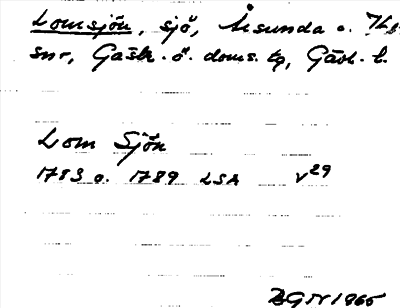 Lomsjön, sjö, Årsunda o.
snr, Gästr. ö. doms. tg, Gävl. l.
Lom Sjön
1783 o. 1789 LSA v29
1965